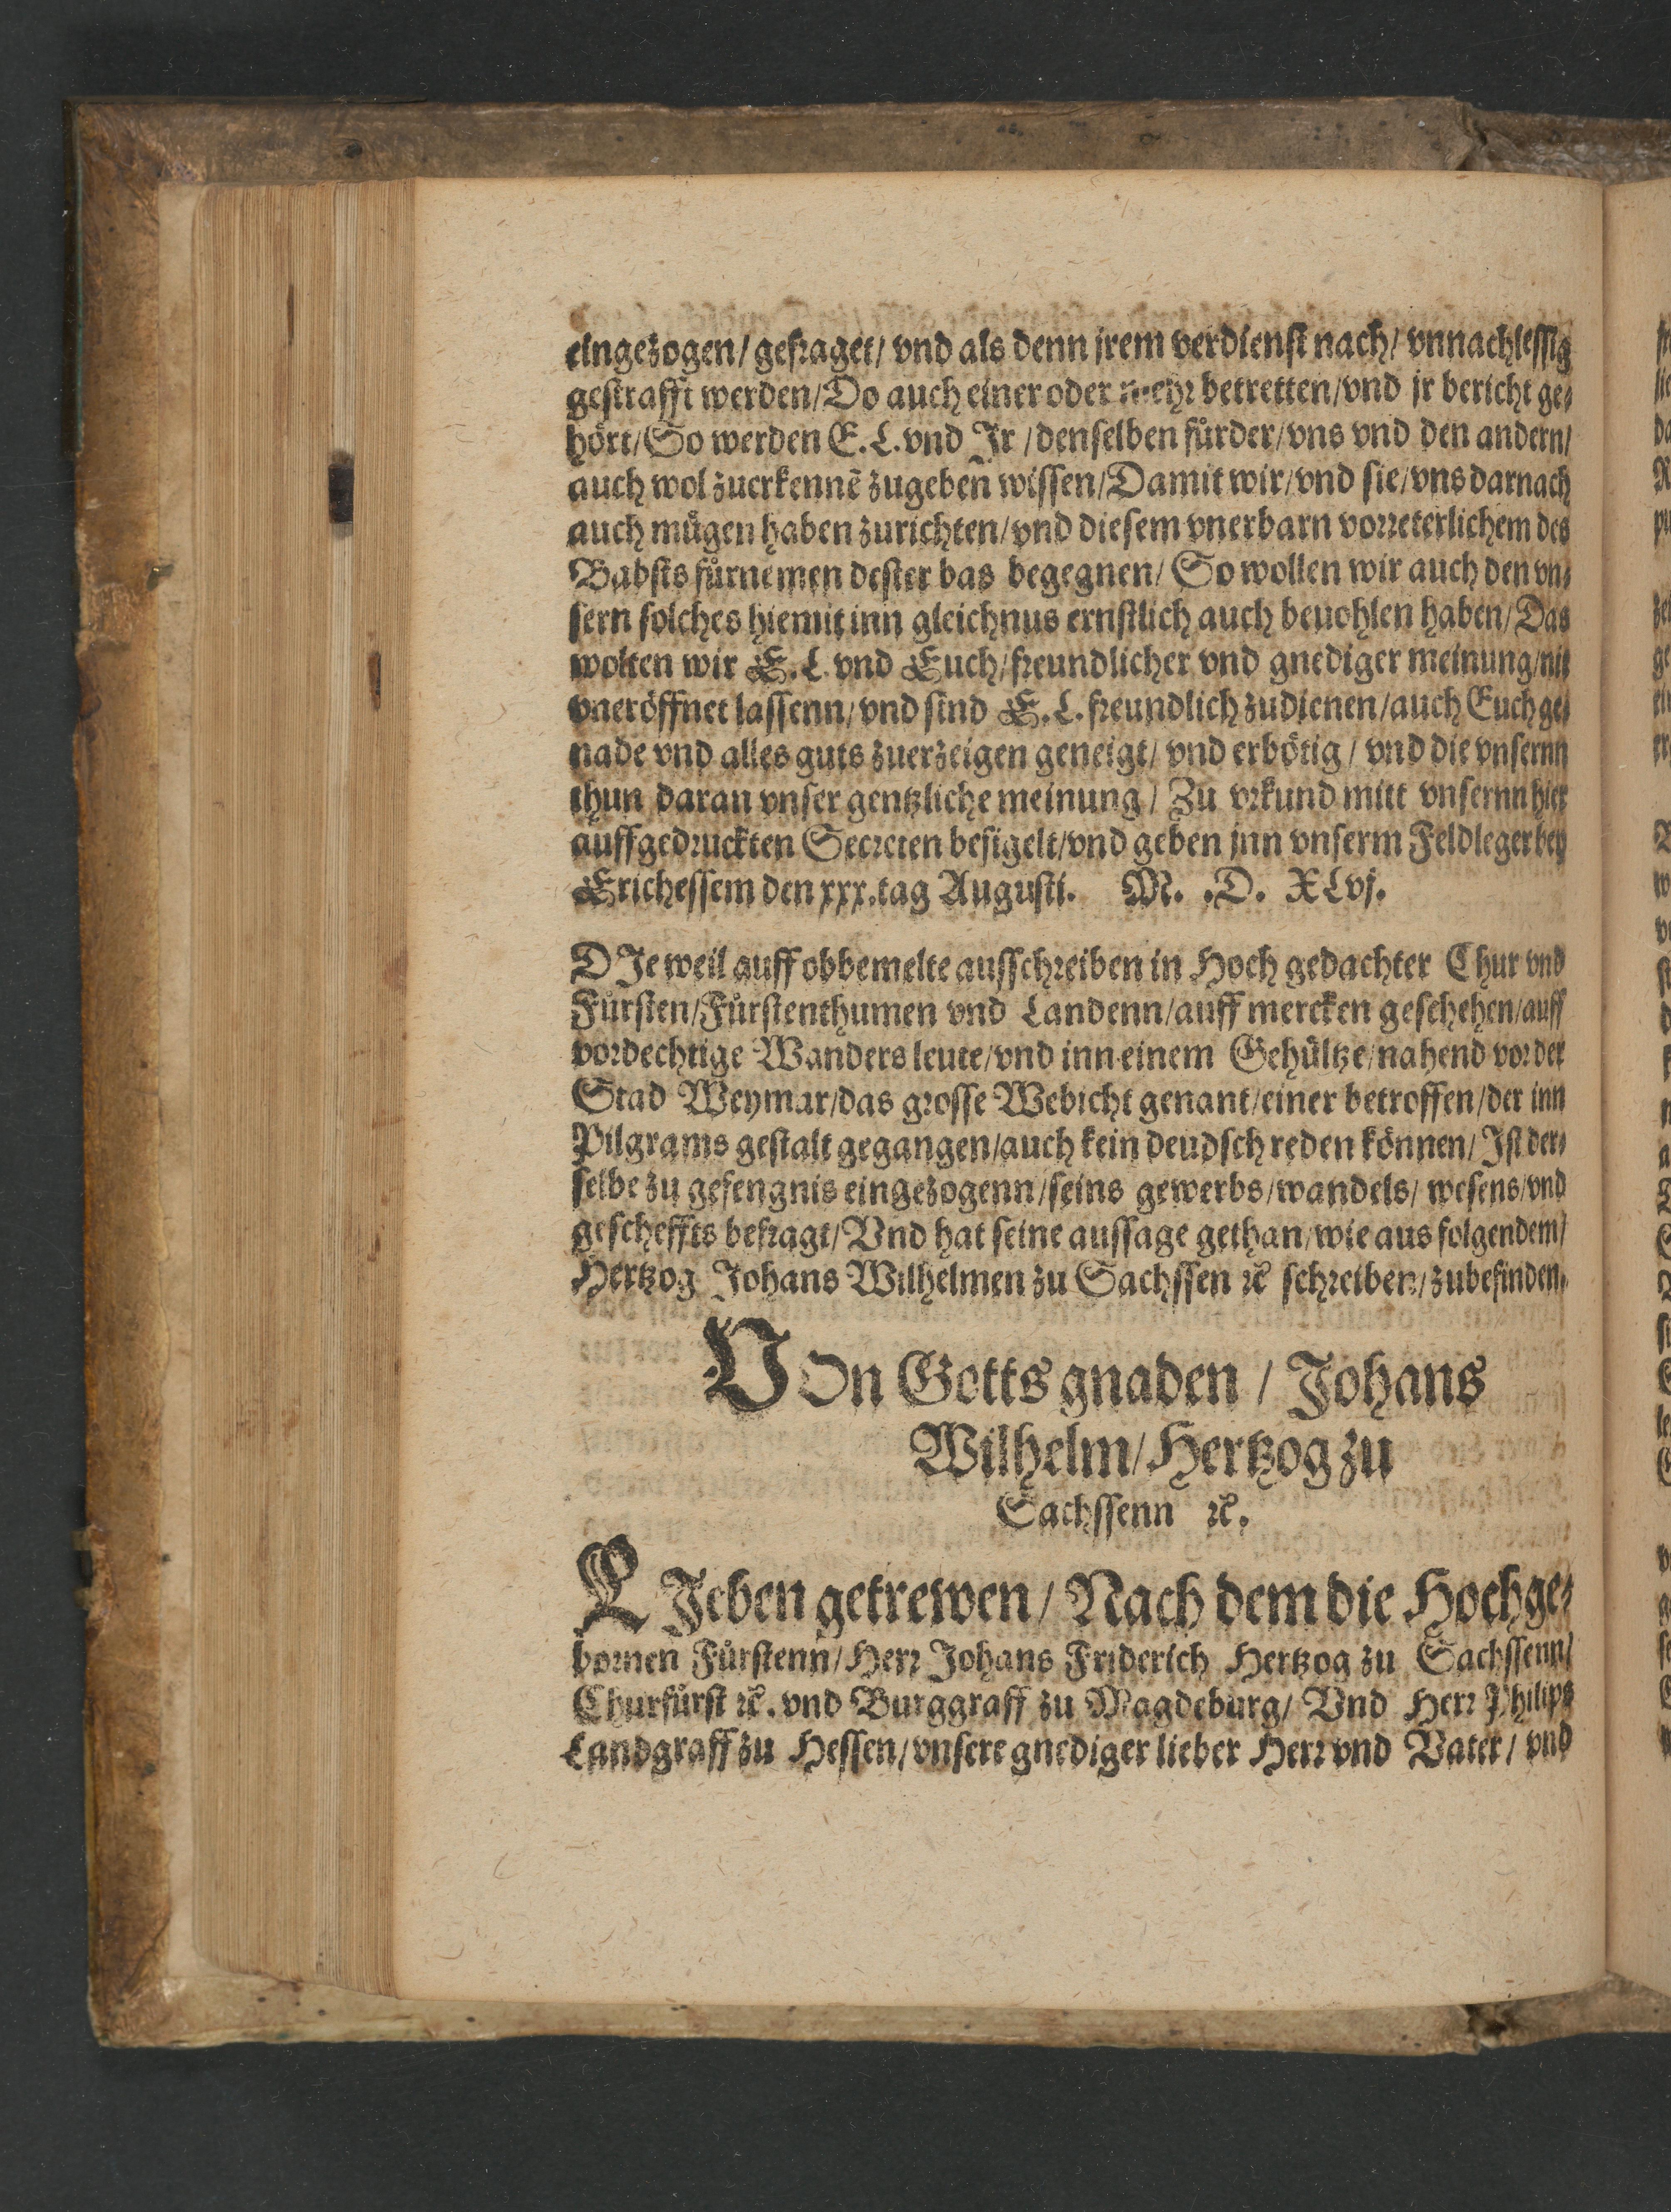 eingezogen/ gefraget/ vnd als denn jrem verdienst nach/ vnnachlessig
gestrafft werden/Do auch einer oder mehr betretten/vnd jr bericht ge⸗
hört/So werden E.L.vnd Jr /denselben fürder/vns vnd den andern/
auch wol zuerkennē zugeben wissen/Damit wir/vnd sie/vns darnach
auch mügen haben zurichten/vnd diesem vnerbarn vorreterlichem des
Babsts fürnemen dester bas begegnen/ So wollen wir auch den vn⸗
sern solches hiemit inn gleichnus ernstlich auch beuohlen haben/Das
wolten wir E.L vnd Euch/freundlicher vnd gnediger meinung/nit
vneröffnet lassenn/vnd sind E.L.freundlich zudienen/auch Euch ge⸗
nade vnd alles guts zuerzeigen geneigt/ vnd erbötig / vnd die vnsernn
thun daran vnser gentzliche meinung / Zu vrkund mitt vnsernn hier
auffgedruckten Secreten besigelt/vnd geben jnn vnserm Feldleger bey
Erichessem den xxx.tag Augusti. M. .D. XLvj.
DJe weil auff obbemelte ausschreiben in Hoch gedachter Chur vnd
Fürsten/Fürstenthumen vnd Landenn/auff mercken geschehen/auff
vordechtige Wanders leute/vnd inn einem Gehültze/nahend vor der
Stad Weymar/das grosse Webicht genant/einer betroffen/der inn
Pilgrams gestalt gegangen/auch kein deudsch reden können/ Ist der⸗
selbe zu gefengnis eingezogenn/seins gewerbs/wandels/ wesens/vnd
gescheffts befragt/ Vnd hat seine aussage gethan/wie aus folgendem/
Hertzog Johans Wilhelmen zu Sachssen ꝛc̃ schreiben/zubefinden.
VOn Gotts gnaden / Johans
Wilhelm/Hertzog zu
Sachssenn ꝛc̃.
LJeben getrewen/ Nach dem die Hochge⸗
bornen Fürstenn/Herr Johans Friderich Hertzog zu Sachssenn/
Churfürst ꝛc̃.vnd Burggraff zu Magdeburg/ Vnd Herr Philips
Landgraff zu Hessen/vnsere gnediger lieber Herr vnd Vater/ vnd